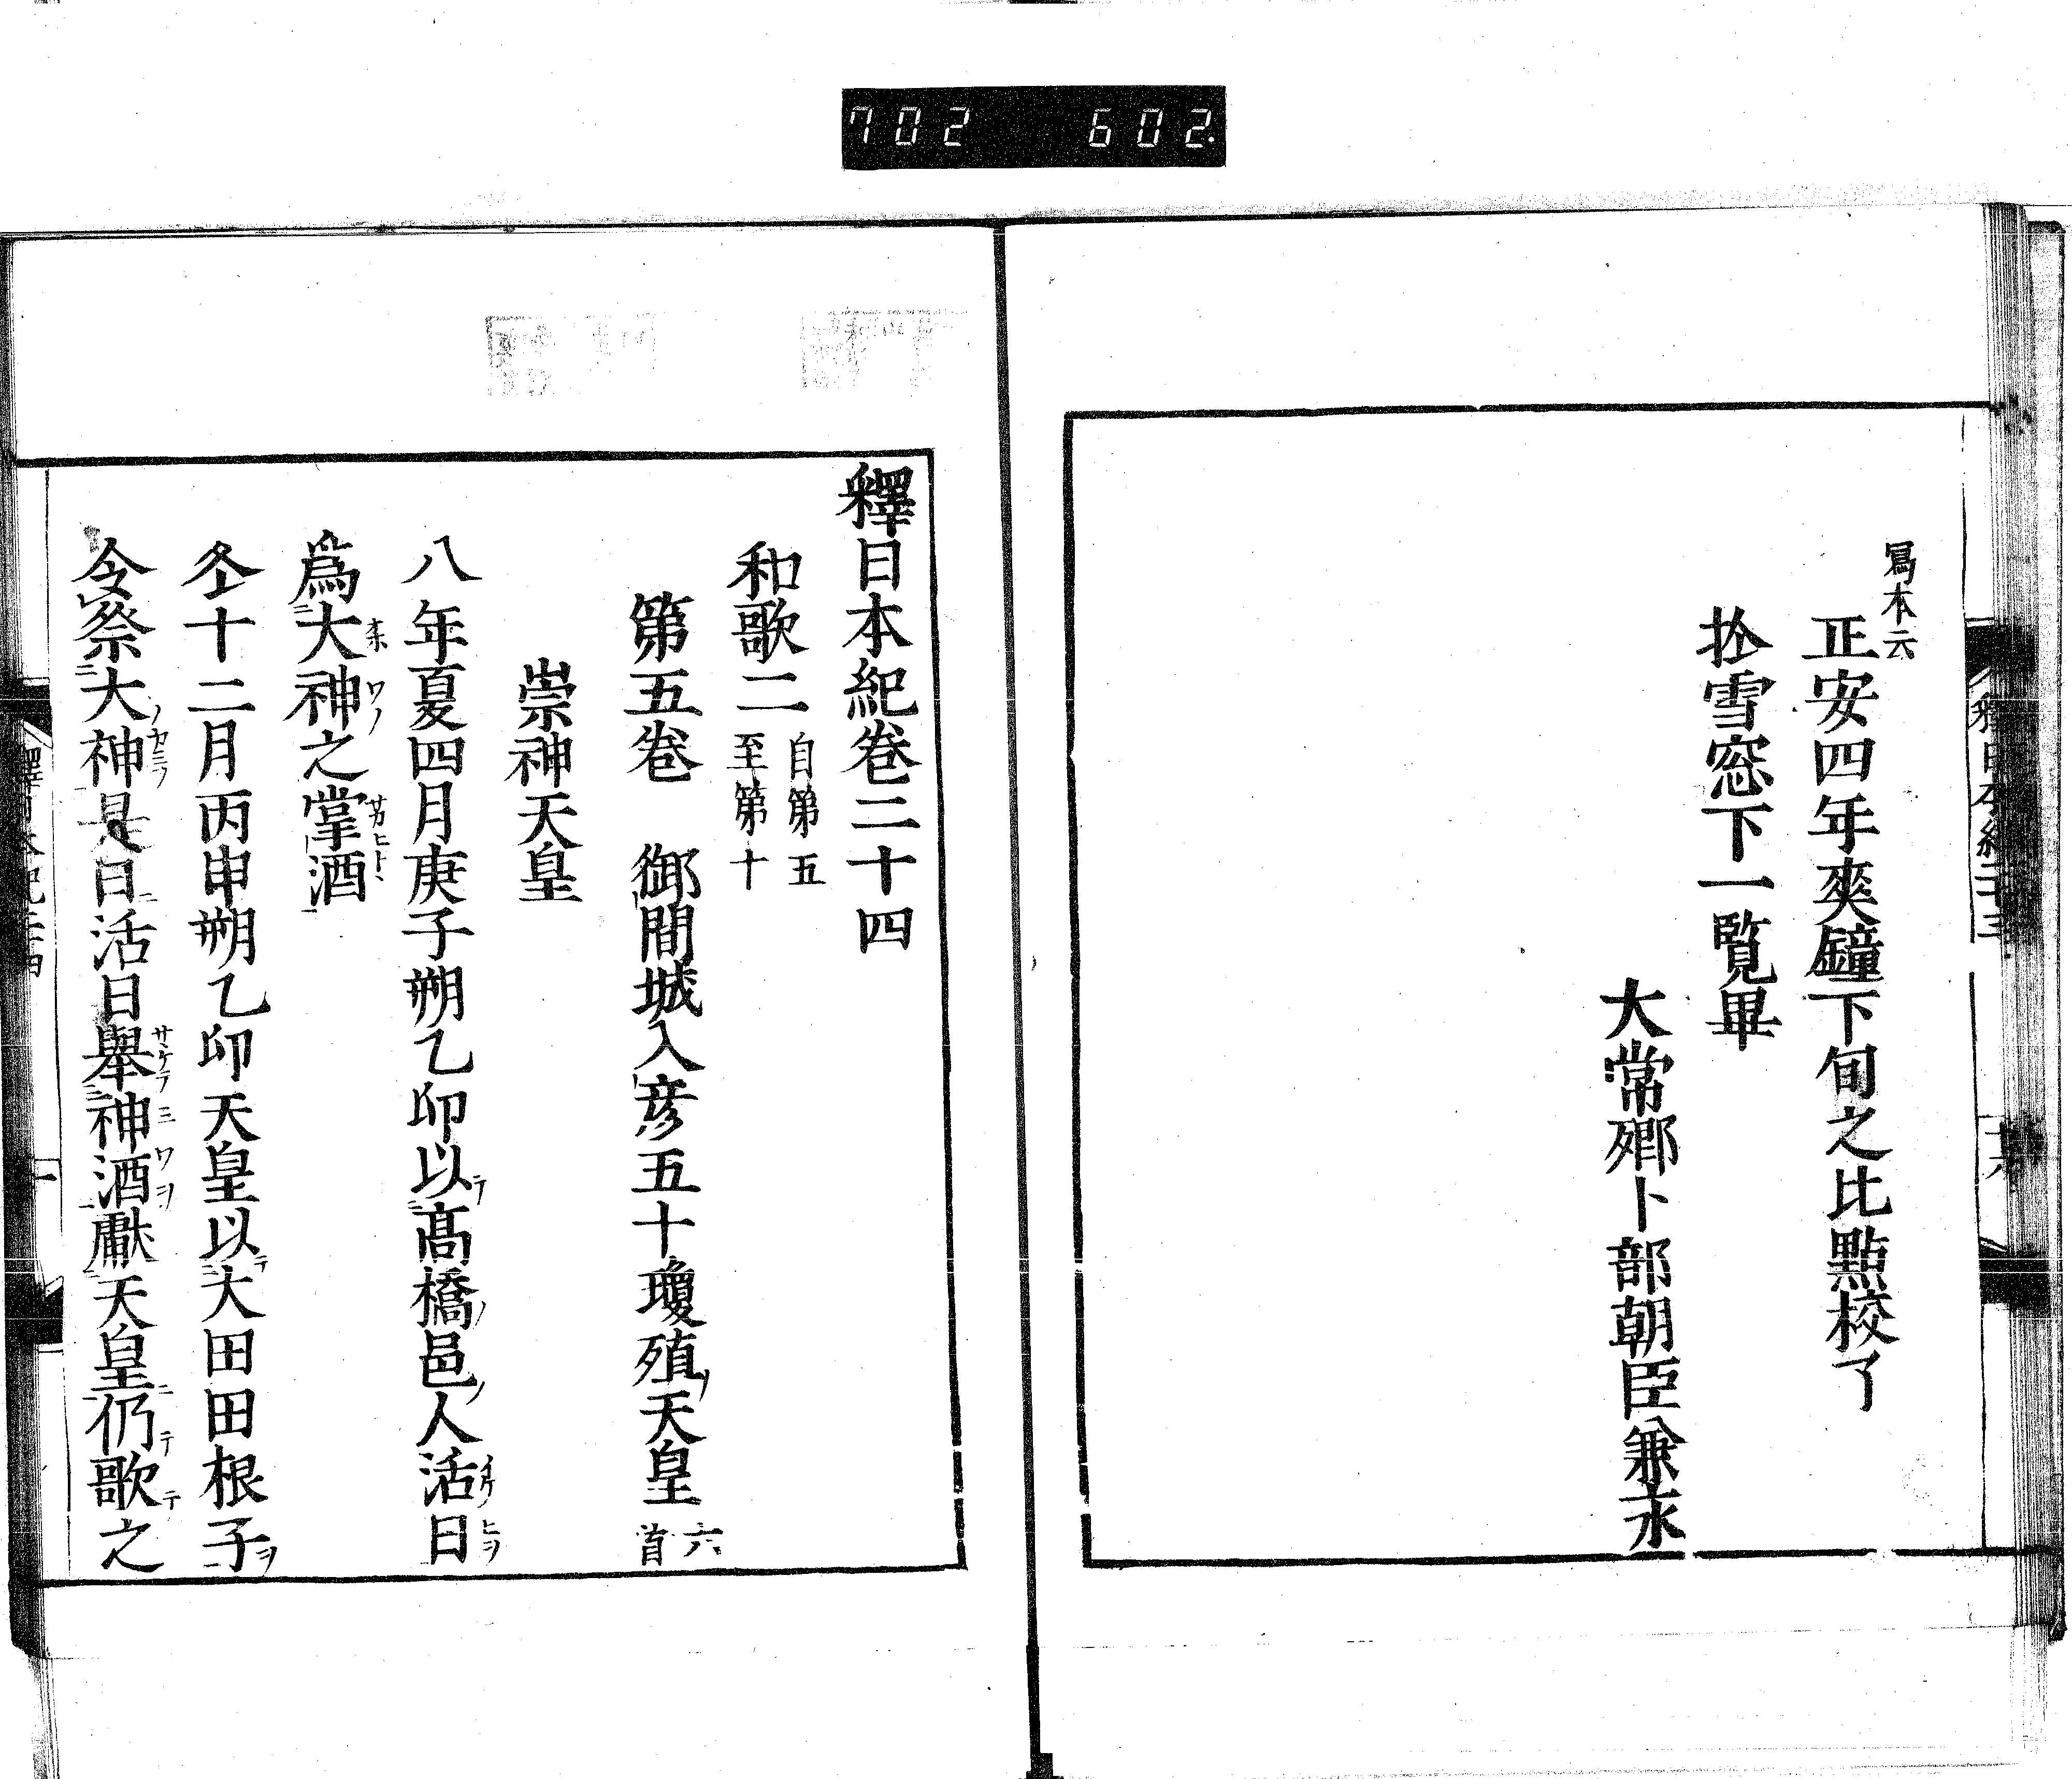 702 602
寫本云
正安四年夾鐘下旬之比點校了
於雪窓下一覧畢
大常卿卜部朝臣兼永
釋日本紀卷二十四
和歌二 自第五
至第十
第五卷 御間城入彦五十瓊殖ノ天皇 六首
崇神天皇
八年夏四月庚子朔乙卯以テ高橋ノ邑ノ人活日ヲ
爲大神之掌酒
冬十二月丙申朔乙卯天皇以テ大田田根子ヲ
令祭大神是日活日擧神酒獻天皇仍テ歌テ之